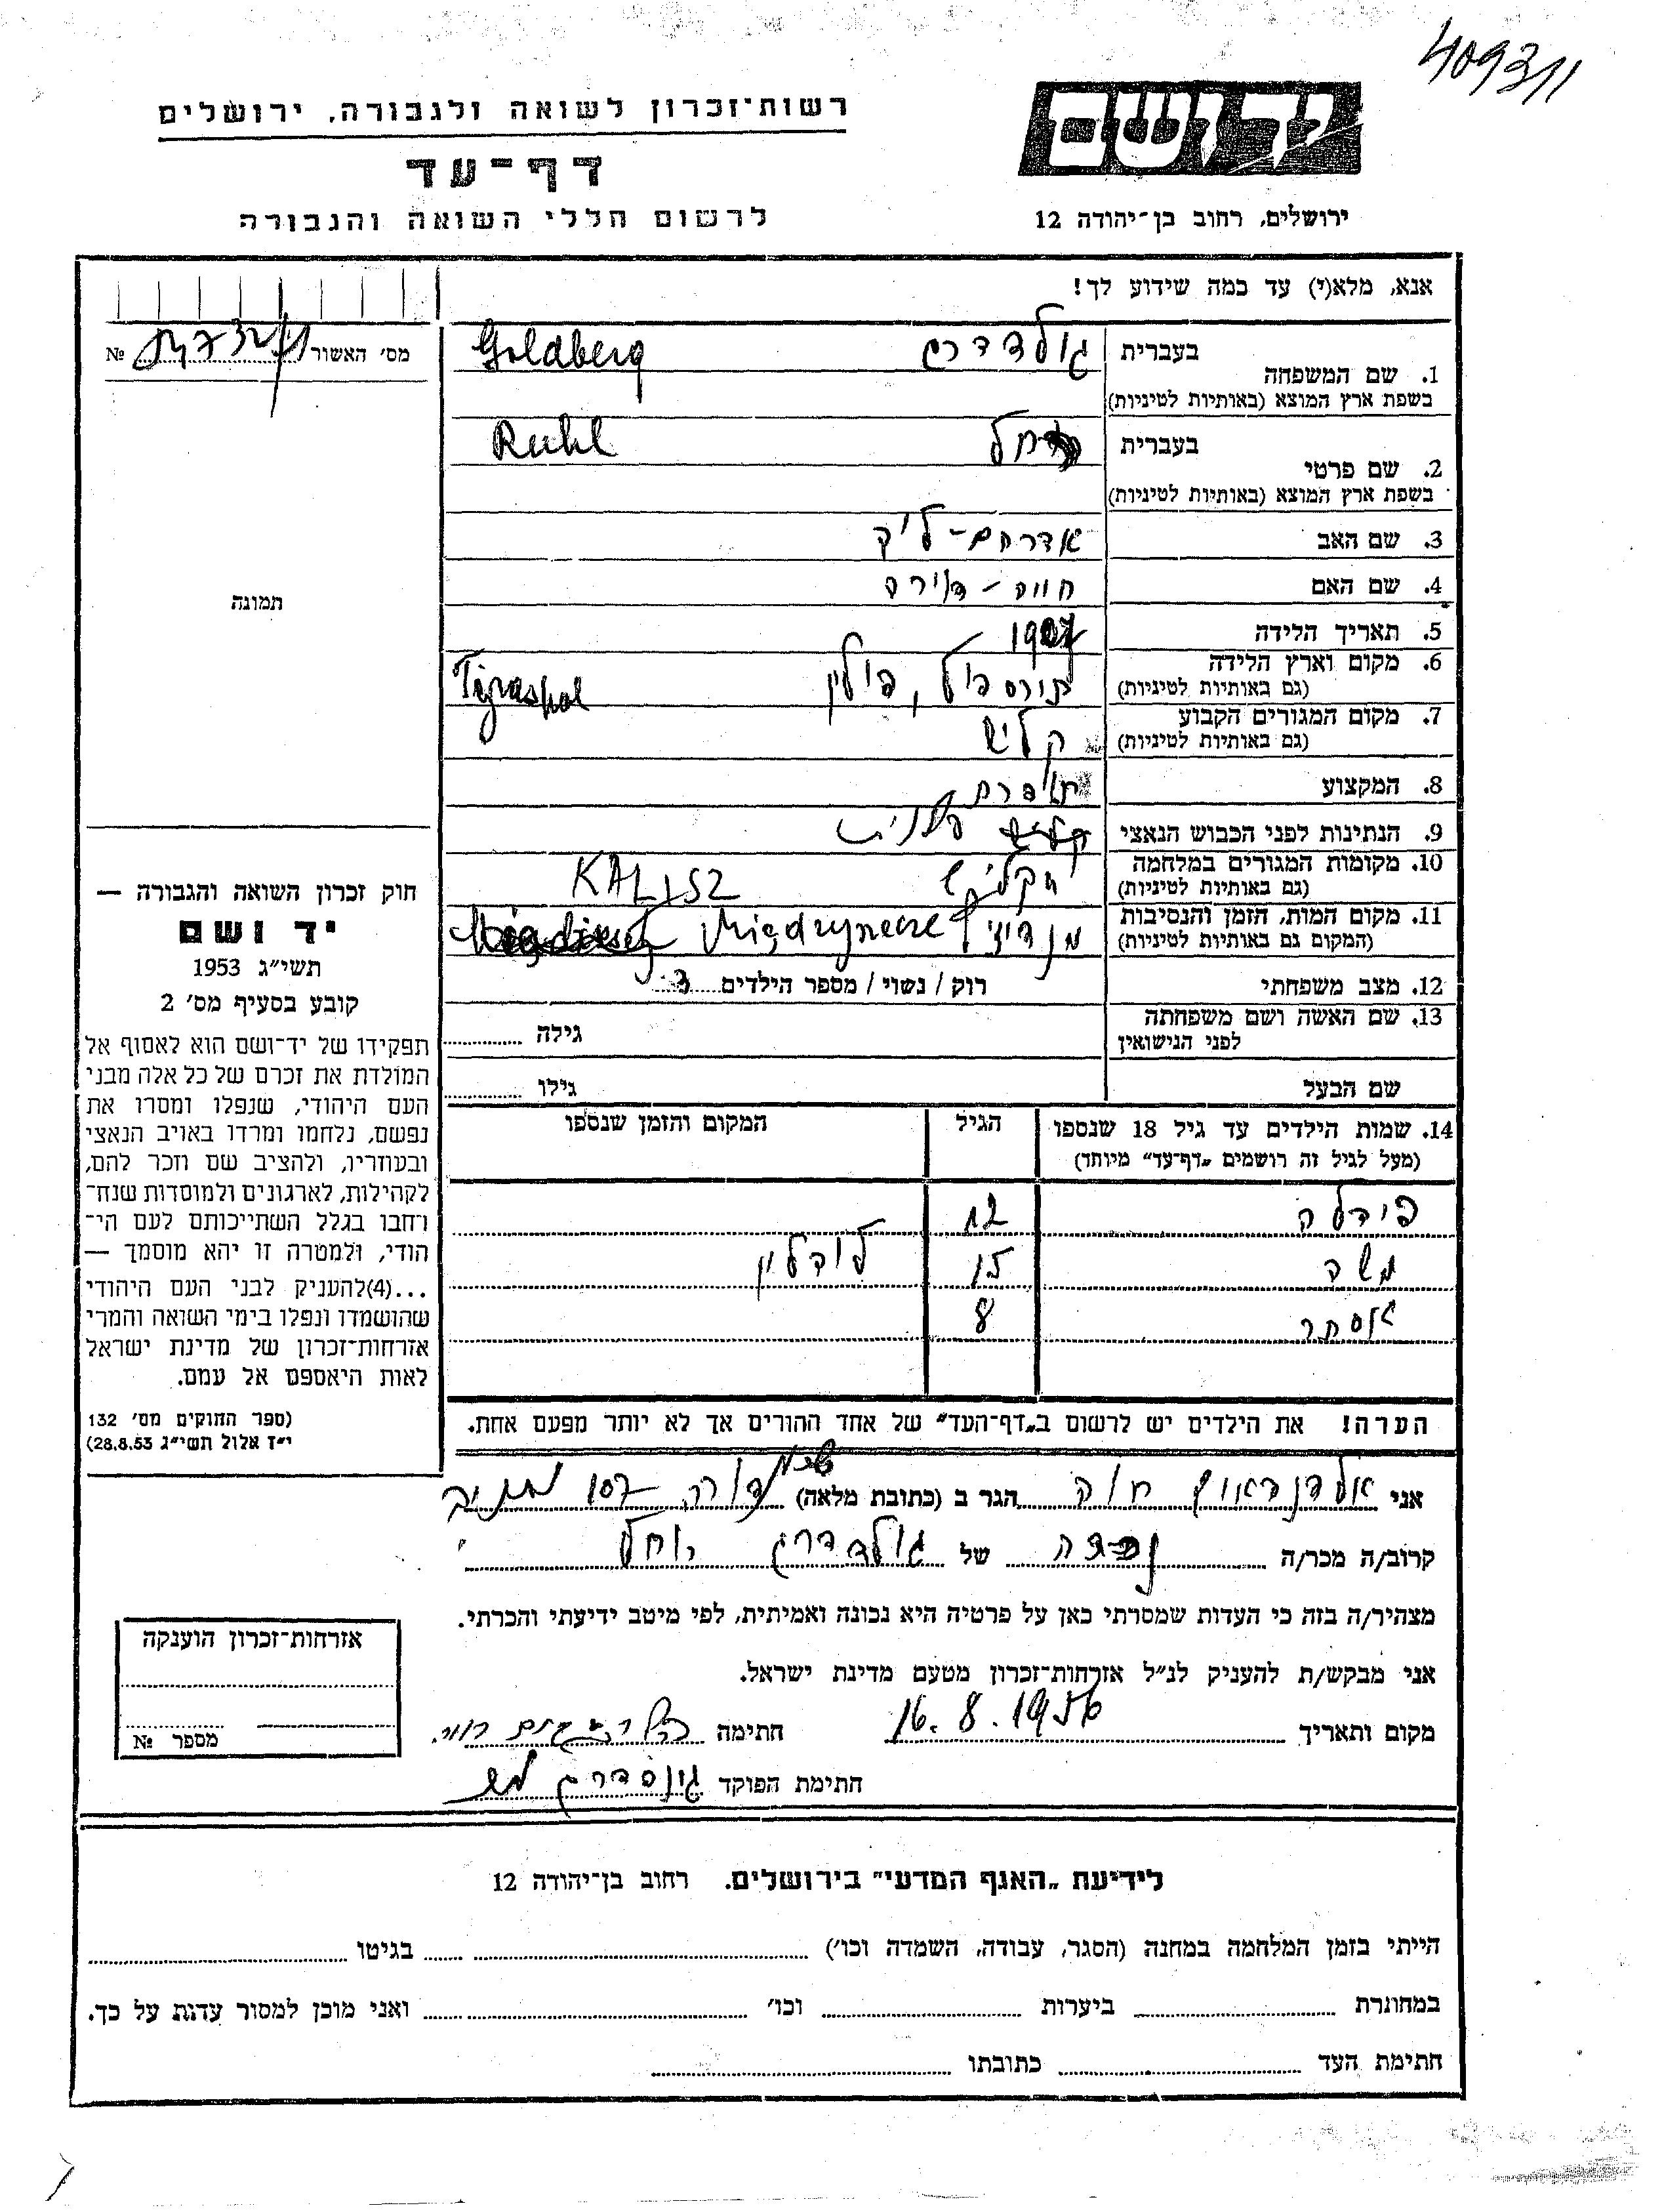 409311
רשות־זכרון לשואה ולגבורה, ירושלים
יד ושם
דף־עד
לרשום חללי השואה והגבורה
ירושלים, רחוב בן־יהודה 12
אנא, מלא(י) עד כמה שידוע לך!
מס׳ האשור №
בעברית גולדברג Goldberg
1. שם המשפחה
בשפת ארץ המוצא (באותיות לטיניות)
בעברית רחל Ruhl
2. שם פרטי
בשפת ארץ המוצא (באותיות לטיניות)
3. שם האב אברהם-ליב
4. שם האם חווה -
5. תאריך הלידה 1907
6. מקום וארץ הלידה פולין
(גם באותיות לטיניות)
7. מקום המגורים הקבוע קליש
(גם באותיות לטיניות)
8. המקצוע
9. הנתינות לפני הכבוש הנאצי
10. מקומות המגורים במלחמה KALISZ
(גם באותיות לטיניות)
11. מקום המות, הזמן והנסיבות
(המקום גם באותיות לטיניות)
12. מצב משפחתי רוק / נשוי / מספר הילדים 3
13. שם האשה ושם משפחתה גילה
לפני הנישואין
שם הבעל גילו
14. שמות הילדים עד גיל 18 שנספו הגיל המקום והזמן שנספו
(מעל לגיל זה רושמים „דף־עד” מיוחד)
12
משה 15 לובלין
אסתר 8
הערה! את הילדים יש לרשום ב„דף־העד” של אחד ההורים אך לא יותר מפעם אחת.
תמונה
חוק זכרון השואה והגבורה —
יד ושם
תשי״ג 1953
קובע בסעיף מס׳ 2
תפקידו של יד־ושם הוא לאסוף אל
המולדת את זכרם של כל אלה מבני
העם היהודי, שנפלו ומסרו את
נפשם, נלחמו ומרדו באויב הנאצי
ובעוזריו, ולהציב שם וזכר להם,
לקהילות, לארגונים ולמוסדות שנח־
רחבו בגלל השתייכותם לעם הי־
הודי, ולמטרה זו יהא מוסמך —
...(4)להעניק לבני העם היהודי
שהושמדו ונפלו בימי השואה והמרי
אזרחות־זכרון של מדינת ישראל
לאות היאספם אל עמם.
(ספר החוקים מס׳ 132
י״ז אלול תשי״ג 28.8.53)
אני חוה הגר ב (כתובת מלאה) 107
קרוב/ה מכר/ה של גולדברג רחל
מצהיר/ה בזה כי העדות שמסרתי כאן על פרטיה היא נכונה ואמיתית, לפי מיטב ידיעתי והכרתי.
אני מבקש/ת להעניק לנ״ל אזרחות־זכרון מטעם מדינת ישראל.
מקום ותאריך 16.8.1956 חתימה
חתימת הפוקד
אזרחות־זכרון הוענקה
מספר №
לידיעת „האגף המדעי” בירושלים. רחוב בן־יהודה 12
הייתי בזמן המלחמה במחנה (הסגר, עבודה, השמדה וכו׳) בגיטו
במחתרת ביערות וכו׳ ואני מוכן למסור עדות על כך.
חתימת העד כתובתו